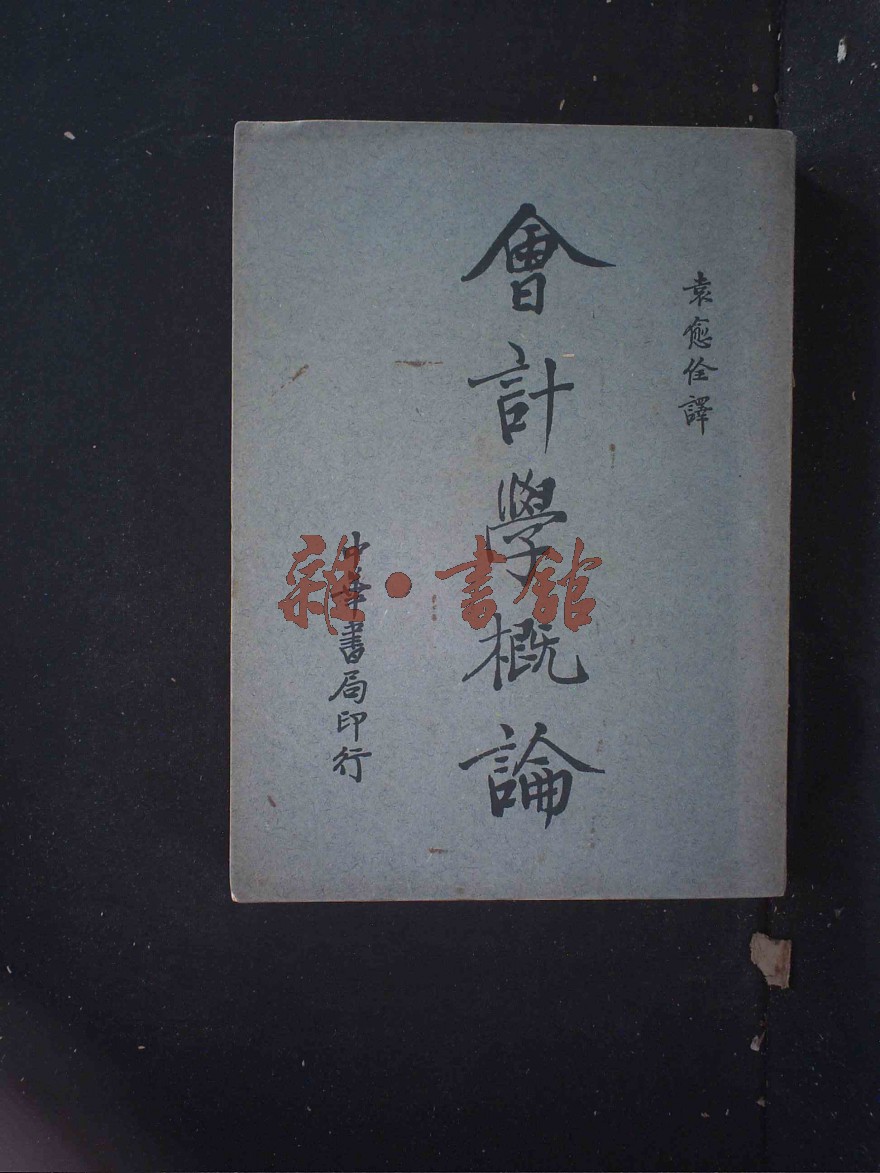 袁愈佺譯
會計學概論
中華書局印行
雜·書館